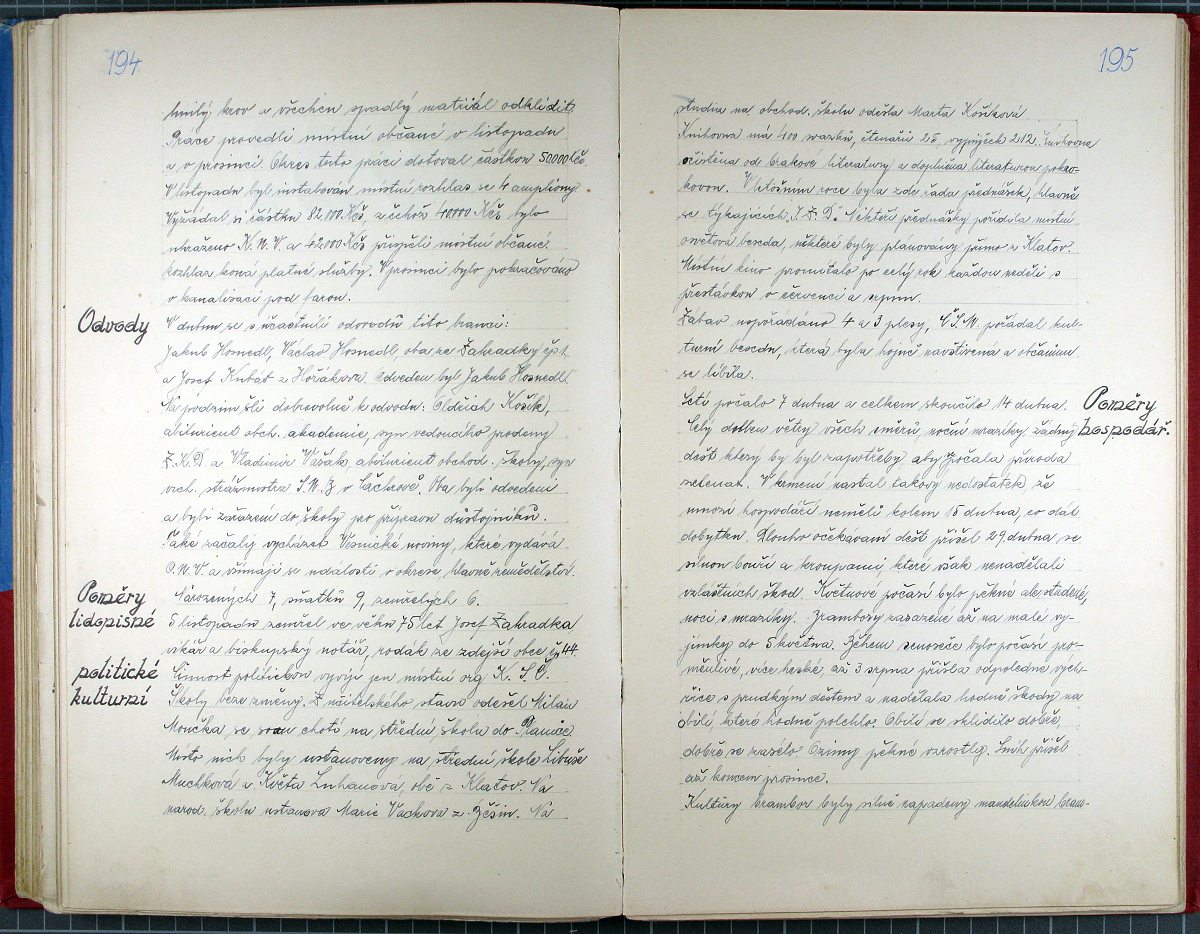 194
hnilý krov a všechen spadlý materiál odklidit.
Práce provedli místní občané v listopadu
a v prosinci. Okres tuto práci dotoval částkou 50000 Kčs
V listopadu byl instalován místní rozhlas se 4 ampliony
Vyžádal si částku 82.000 Kčs, z čehož 40.000 Kčs bylo
uhraženo K.N.V. a 42.000 Kčs přispěli místní občané.
Rozhlas koná platné služby. V prosinci bylo pokračováno
v kanalisaci pod farou.
Odvody
V dubnu se súčastnili odvodů tito branci:
Jakub Hosnedl, Václav Hosnedl, oba ze Zahrádky čp 1.
a Josef Kubát z Hořákova. Odveden byl Jakub Hosnedl.
Na podzim šli dobrovolně k odvodu: Oldřich Košík,
abiturient obch. akademie, syn vedoucího prodejny
Z.K.D a Vladimír Vašák abiturient obchod. školy, syn
vrch. strážmistra S.N.B v Čachrově. Oba byli odvedeni
a byli zařazeni do školy pro přípravu důstojníků.
Také začaly vycházet Vesnické noviny, které vydává
O.N.V. a všímají se událostí v okrese, hlavně zemědělství.
Poměry
lidopisné
Narozených 7, sňatků 9, zemřelých 6.
5 listopadu zemřel ve věku 75 let Josef Zahrádka
vikář a biskupský notář, rodák ze zdejší obce čp 44.
politické
Činnost politickou vyvíjí jen místní org. K.S.Č.
kulturní
Školy beze změny. Z učitelského stavu odešel Milan
Moučka se svou chotí na střední školu do Plánice
Místo nich byly ustanoveny na střední škole Libuše
Muchková a Květa Luhanová, obě z Klatov. Na
národ. školu ustanova Marie Vacková z Běšin. Na
195
studia na obchod. školu odešla Marta Košíková
Knihovna má 400 svazků, čtenářů 25, výpůjček 212. Knihovna
očištěna od brakové literatury a doplněna literaturou pokro-
kovou. V letošním roce byla zde řada přednášek, hlavně
se týkajících J.Z.D. Některé přednášky pořídila místní
osvětová beseda, některé byly plánovány přímo z Klatov.
Místní kino promítalo po celý rok každou neděli s
přestávkou v červenci a srpnu.
Zábav uspořádáno 4 a 3 plesy, Č.S.M. pořádal kul-
turní besedu, která byla hojně navštívena a občanům
se líbila.
Poměry
hospodář.
Setí počalo 7 dubna a celkem skončilo 14 dubna.
Celý duben větry všech směrů, noční mrazíky, žádný
déšť který by byl zapotřeby aby počala příroda
zelenat. V krmení nastal takový nedostatek, že
mnozí hospodáři neměli kolem 15 dubna, co dát
dobytku. Dlouho očekávaný déšť přišel 29. dubna se
silnou bouří a kroupami které však nenadělali
vzláštních škod. Květnové počasí bylo pěkné ale studené,
noci s mrazíky. Brambory zasazené až na malé vy-
jímky do 5 května. Během senoseče bylo počasí pro-
měnlivé, více hezké, až 3 srpna přišla odpoledne vich-
řice s prudkým deštěm a nadělala hodně škody na
obilí, které hodně polehlo. Obilí se sklidilo dobře,
dobře se zaselo. Ozimy pěkně vzrostly. Sníh přišel
až koncem prosince.
Kultury brambor byly silně napadeny mandelinkou bram-